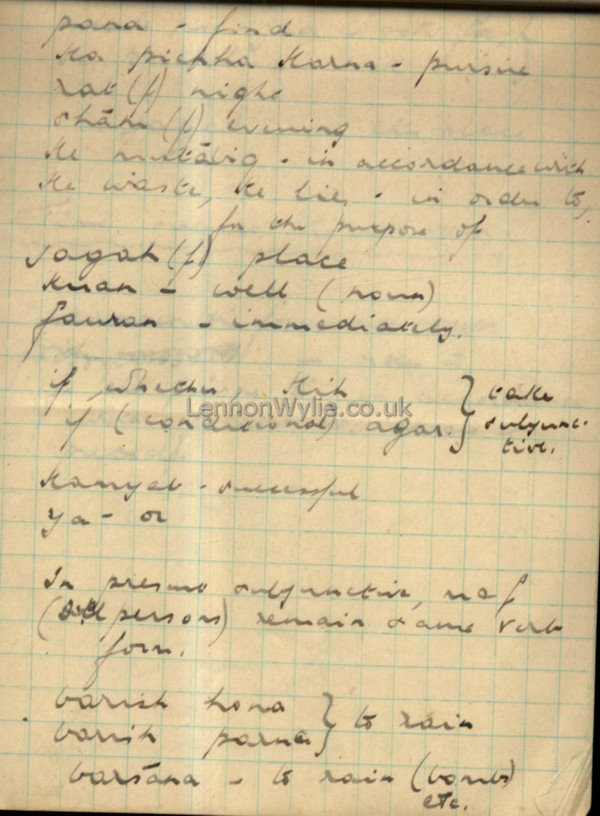 para - find
Ka pichha Karna - pursue
rat (f) night
shām (f) evening
Ke mutābiq - in accordance with
Ke waste, Ke lie, - in order to,
for the purpose of
Jagah (f) place
Kuan - well (noun)
fauran - immediately.
if, whether, Kih } take
if (conditional) agar. } subjunc-
tive.
LennonWylie.co.uk
Kamyab - successful
ya - or
In present subjunctive, m & f
(all persons) remain same verb
form.
barish hona } to rain
barish parna }
barsāna - to rain (bombs)
etc.